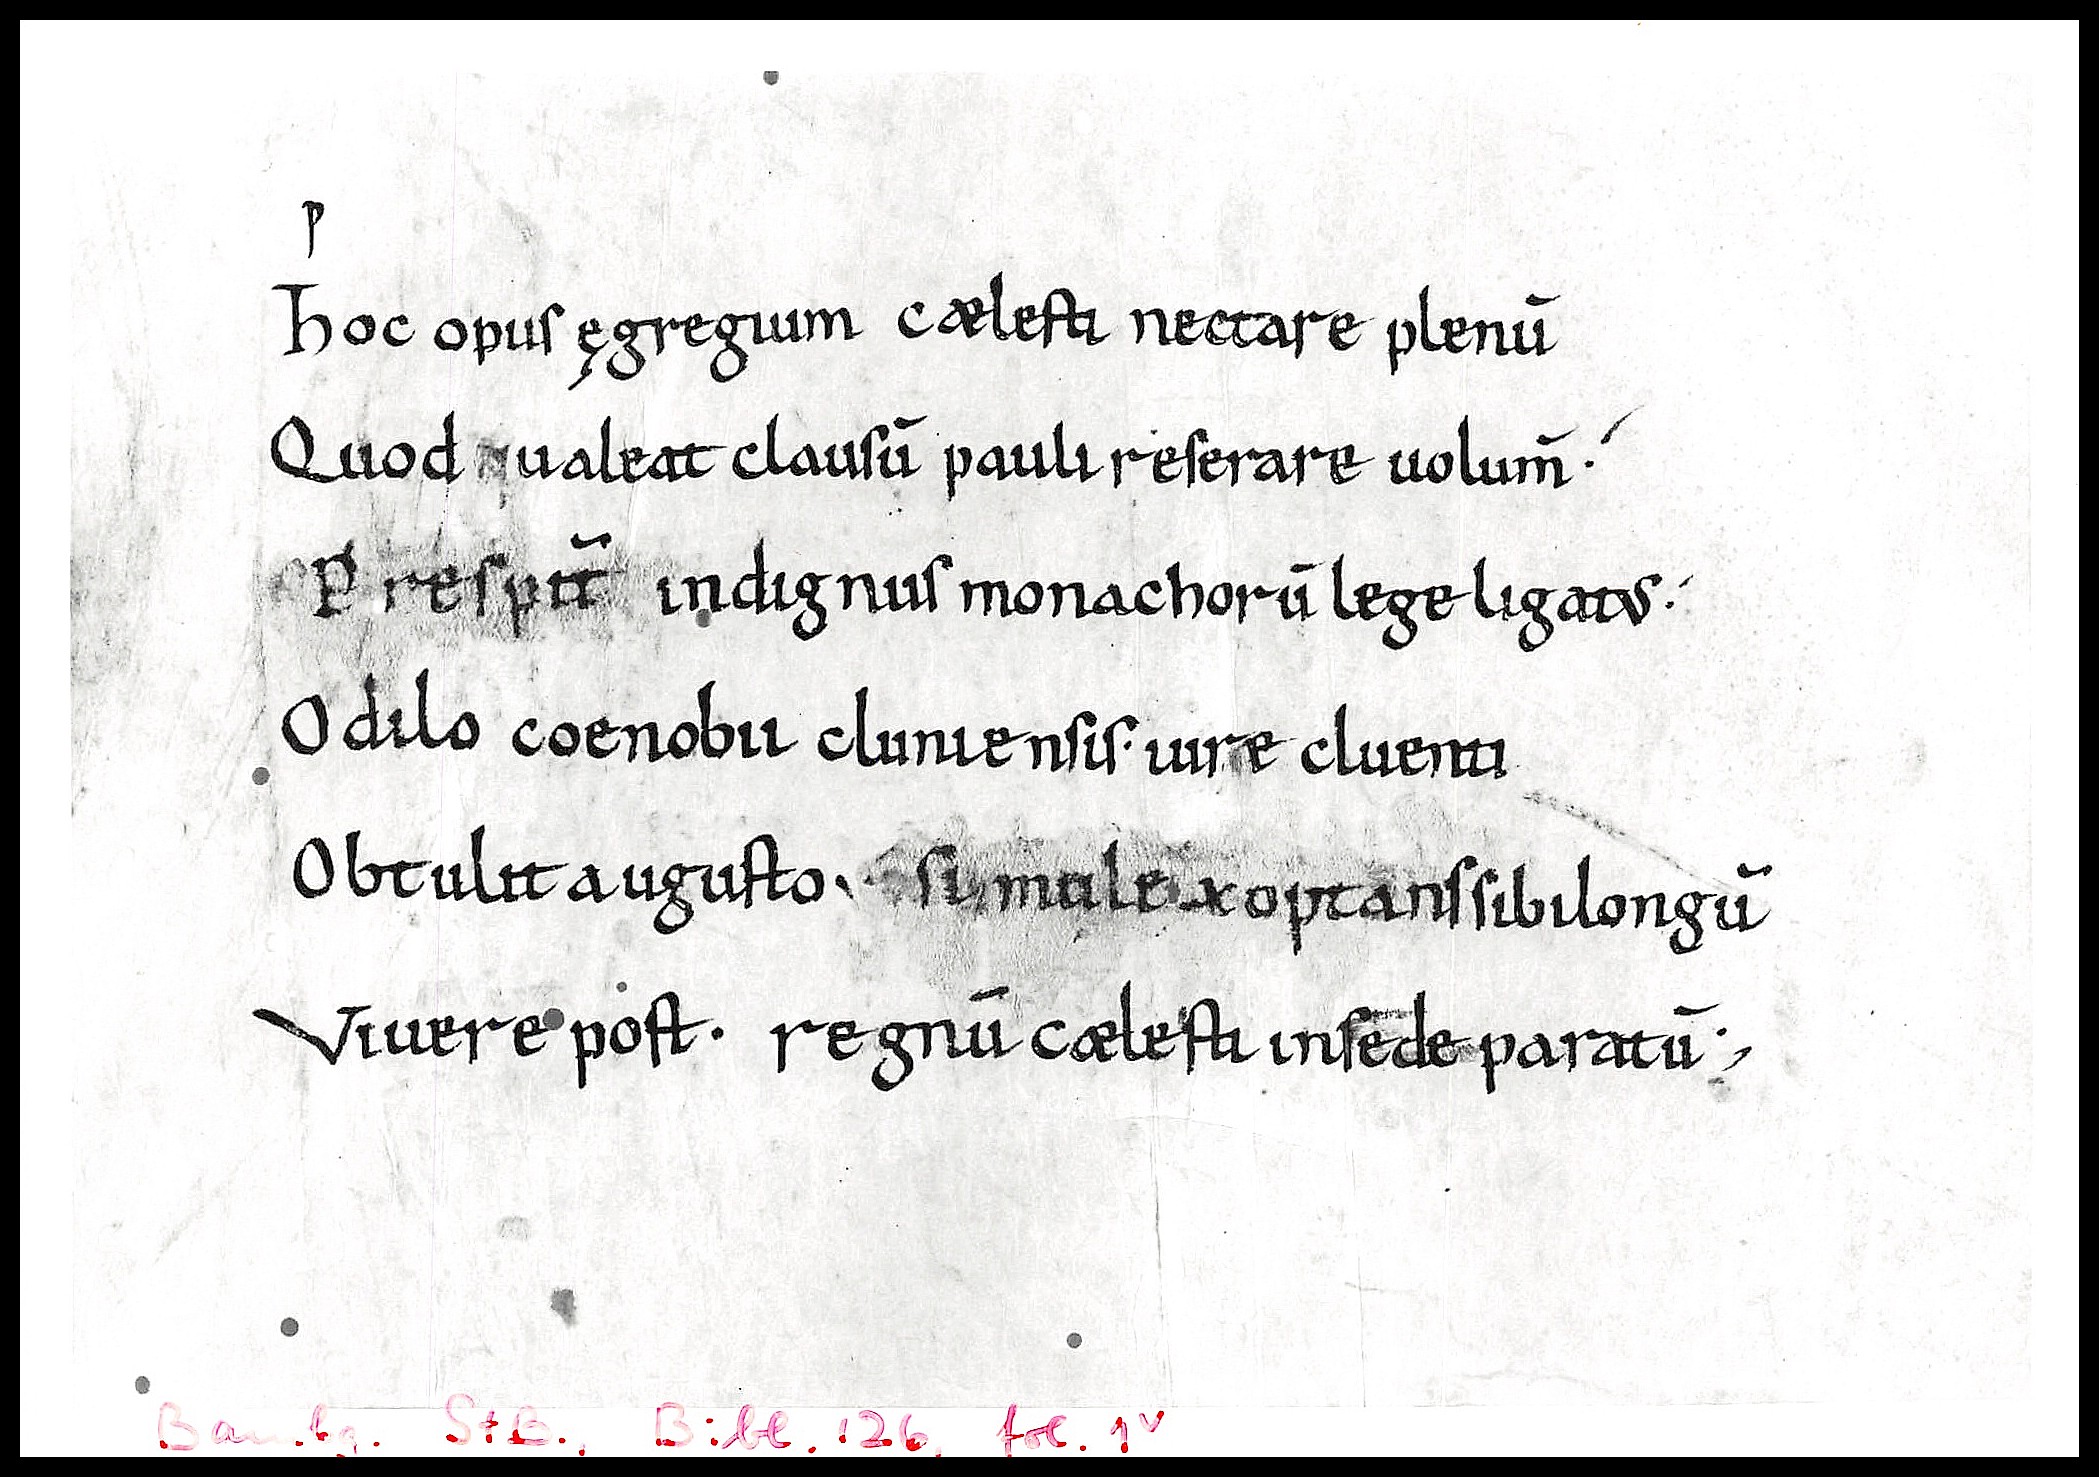 p
Hoc opus ęgregium cælesti nectare plenū
Quod ualeat clausū pauli reserare uolum̄.
indignus monachorū lege ligatus.
Odilo coenobii cluniensis. iure cluenti
Obtulit augusto. simul exoptans sibi longū
Viuere post. regnū cælesti in sede paratū.,
Bambg. StB., Bibl. 126, fol. 1v